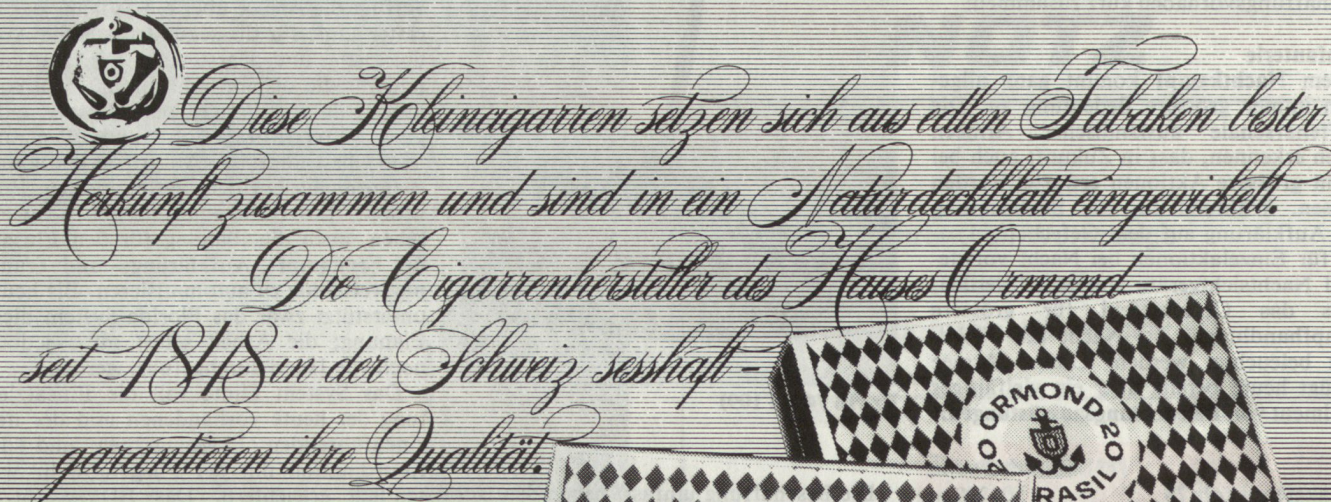 Diese Kleincigarren setzen sich aus edlen Tabaken bester
Herkunft zusammen und sind in ein Naturdeckblatt eingewickelt.
Die Cigarrenhersteller des Hauses Ormond -
seit 1848 in der Schweiz sesshaft -
garantieren ihre Qualität.
20 ORMOND 20
RASIL